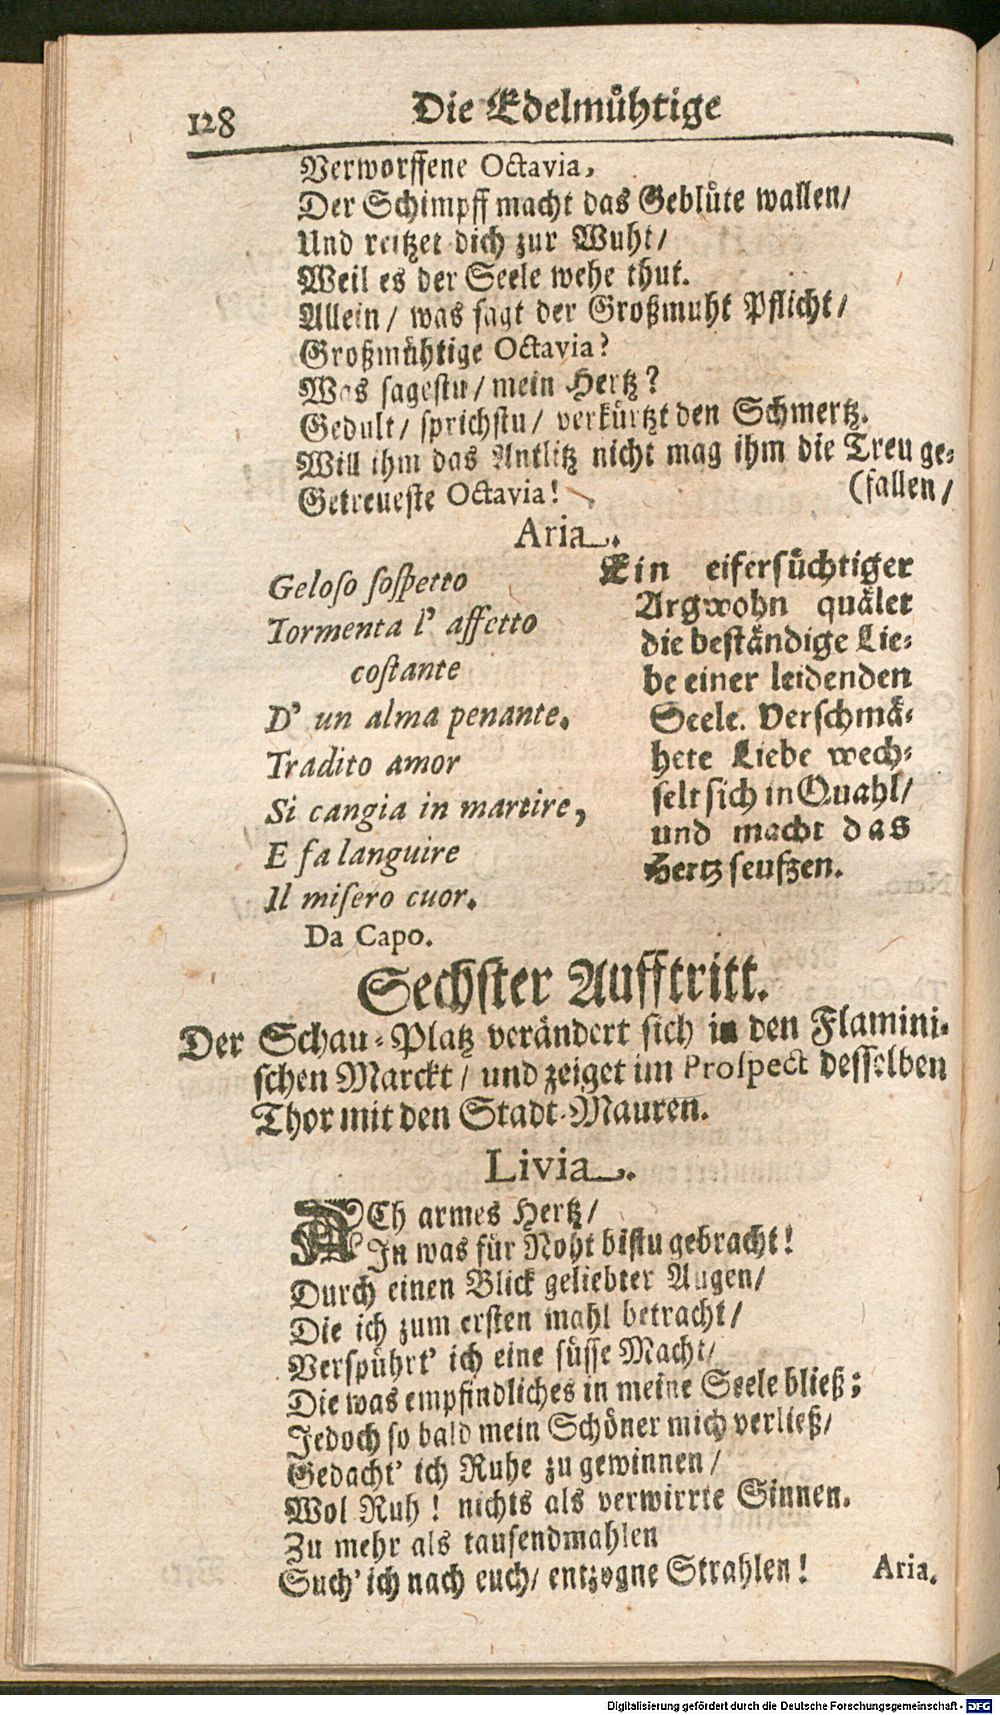 128
Die Edelmühtige
Verworffene Octavia,
Der Schimpff macht das Geblüte wallen/
Und reitzet dich zur Wuht/
Weil es der Seele wehe thut.
Allein/ was sagt der Großmuht Pflicht/
Großmühtige Octavia?
Was sagestu/ mein Hertz?
Gedult/ sprichstu/ verkürtzt den Schmertz.
Will ihm das Antlitz nicht mag ihm die Treu ge-
(fallen/
Getreueste Octavia!
Aria.
Geloso sospetto
Tormenta l' affetto
costante
D' un alma penante.
Tradito amor
Si cangia in martire,
E fa languire
Il misero cuor.
Da Capo.
Ein eifersüchtiger
Argwohn quälet
die beständige Lie-
be einer leidenden
Seele. Verschmä-
hete Liebe wech-
selt sich in Quahl/
und macht das
Hertz seufzen.
Sechster Aufftritt.
Der Schau-Platz verändert sich in den Flamini-
schen Marckt/ und zeiget im Prospect desselben
Thor mit den Stadt-Mauren.
Livia.
ACh armes Hertz/
In was für Noht bistu gebracht!
Durch einen Blick geliebter Augen/
Die ich zum ersten mahl betracht/
Verspührt' ich eine süsse Macht/
Die was empfindliches in meine Seele bließ;
Jedoch so bald mein Schöner mich verließ/
Gedacht' ich Ruhe zu gewinnen/
Wol Ruh! nichts als verwirrte Sinnen.
Zu mehr als tausendmahlen
Such' ich nach euch/ entzogne Strahlen!
Aria.
Digitalisierung gefördert durch die Deutsche Forschungsgemeinschaft - DFG